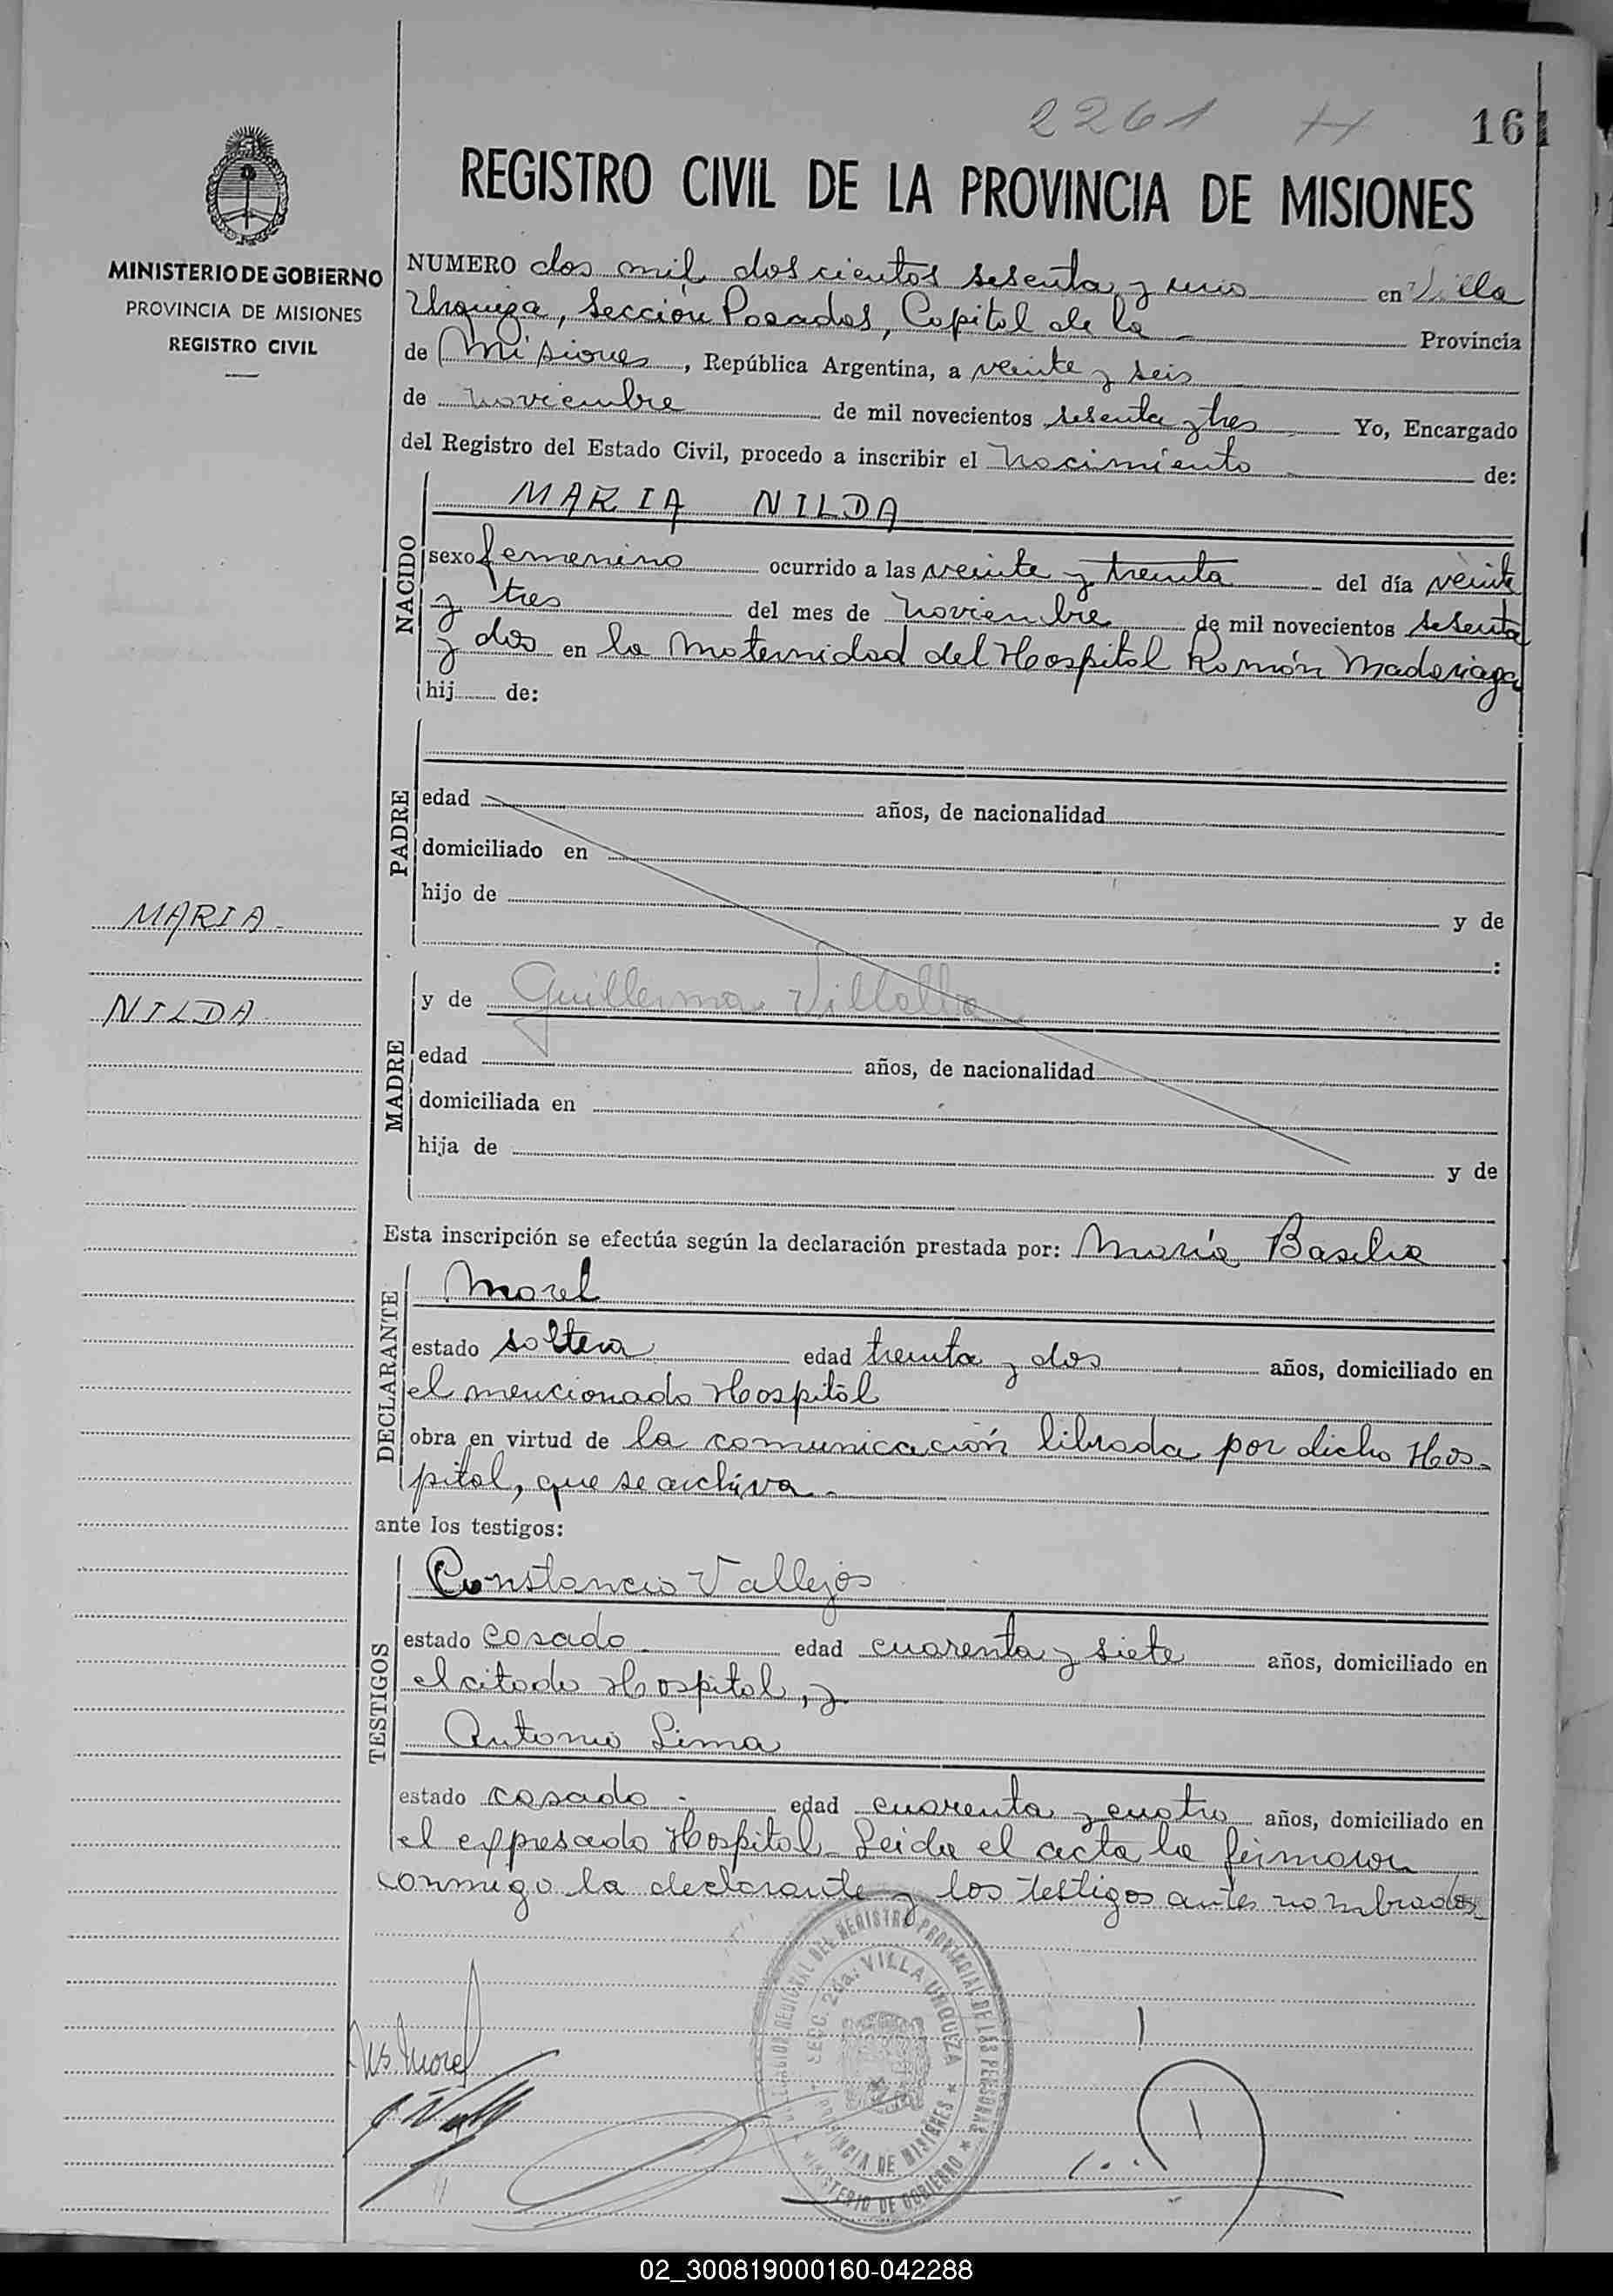 2261
161
REGISTRO CIVIL DE LA PROVINCIA DE MISIONES
MINISTERIO DE GOBIERNO
PROVINCIA DE MISIONES
REGISTRO CIVIL
NUMERO dos mil doscientos sesenta y uno en Villa
Urquiza, Sección Posadas, Capital de la Provincia
de Misiones, República Argentina, a veinte y seis
de noviembre de mil novecientos sesenta y tres Yo, Encargado
del Registro del Estado Civil, procedo a inscribir el nacimiento de:
NACIDO
MARIA NILDA
sexo femenino ocurrido a las veinte y treinta del día veinte
y tres del mes de noviembre de mil novecientos sesenta
y dos en la Maternidad del Hospital Ramón Madariaga
hij de:
PADRE
edad años, de nacionalidad
domiciliado en
hijo de y de
:
MARIA
NILDA
MADRE
y de Guillerma Villalba
edad años, de nacionalidad
domiciliada en
hija de y de
Esta inscripción se efectúa según la declaración prestada por: María Basilia
DECLARANTE
Morel
estado soltera edad treinta y dos años, domiciliado en
el mencionado Hospital
obra en virtud de la comunicación librada por dicho Hos-
pital, que se archiva.
ante los testigos:
TESTIGOS
Constancio Vallejos
estado casado edad cuarenta y siete años, domiciliado en
el citado Hospital, y
Antonio Lima
estado casado edad cuarenta y cuatro años, domiciliado en
el expresado Hospital. Leida el acta la firmaron
conmigo la declarante y los testigos antes nombrados
REGIONAL DEL REGISTRO PROVINCIAL DE LAS PERSONAS
SECC. 2da. VILLA URQUIZA
PROVINCIA DE MISIONES
MINISTERIO DE GOBIERNO
Morel
02_300819000160-042288